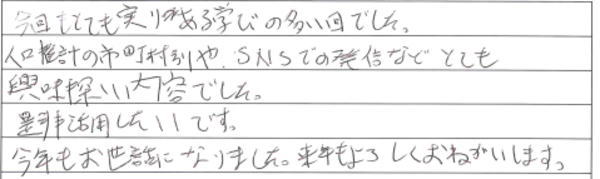 今回もとても実りある学びの多い回でした。
人口推計の市町村別や、SNSでの発信など とても
興味深い内容でした。
是非活用したいです。
今年もお世話になりました。来年もよろしくおねがいします。